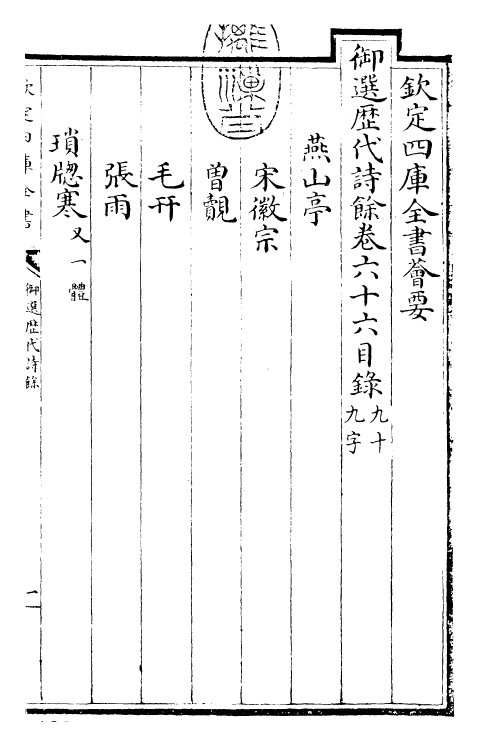 欽定四庫全書薈要
御選歷代詩餘卷六十六目錄九十九字
燕山亭
宋徽宗
曽覿
毛幵
張雨
瑣牕寒又一體
欽定四庫全書
御選歷代詩餘
一